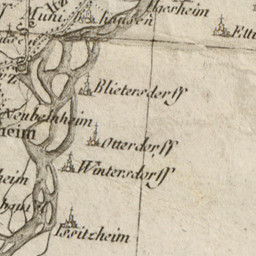 Muni
hausen
Agersheim
Ett
Blietersdorff
Neubelnheim
heim
Otterdorff
Wintersdorff
heim
haus
Issitzheim